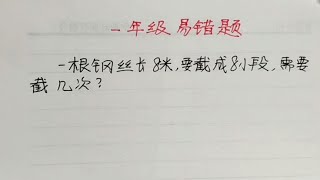 一年级易错题
一根钢丝长8米,要截成8小段,需要
截几次?